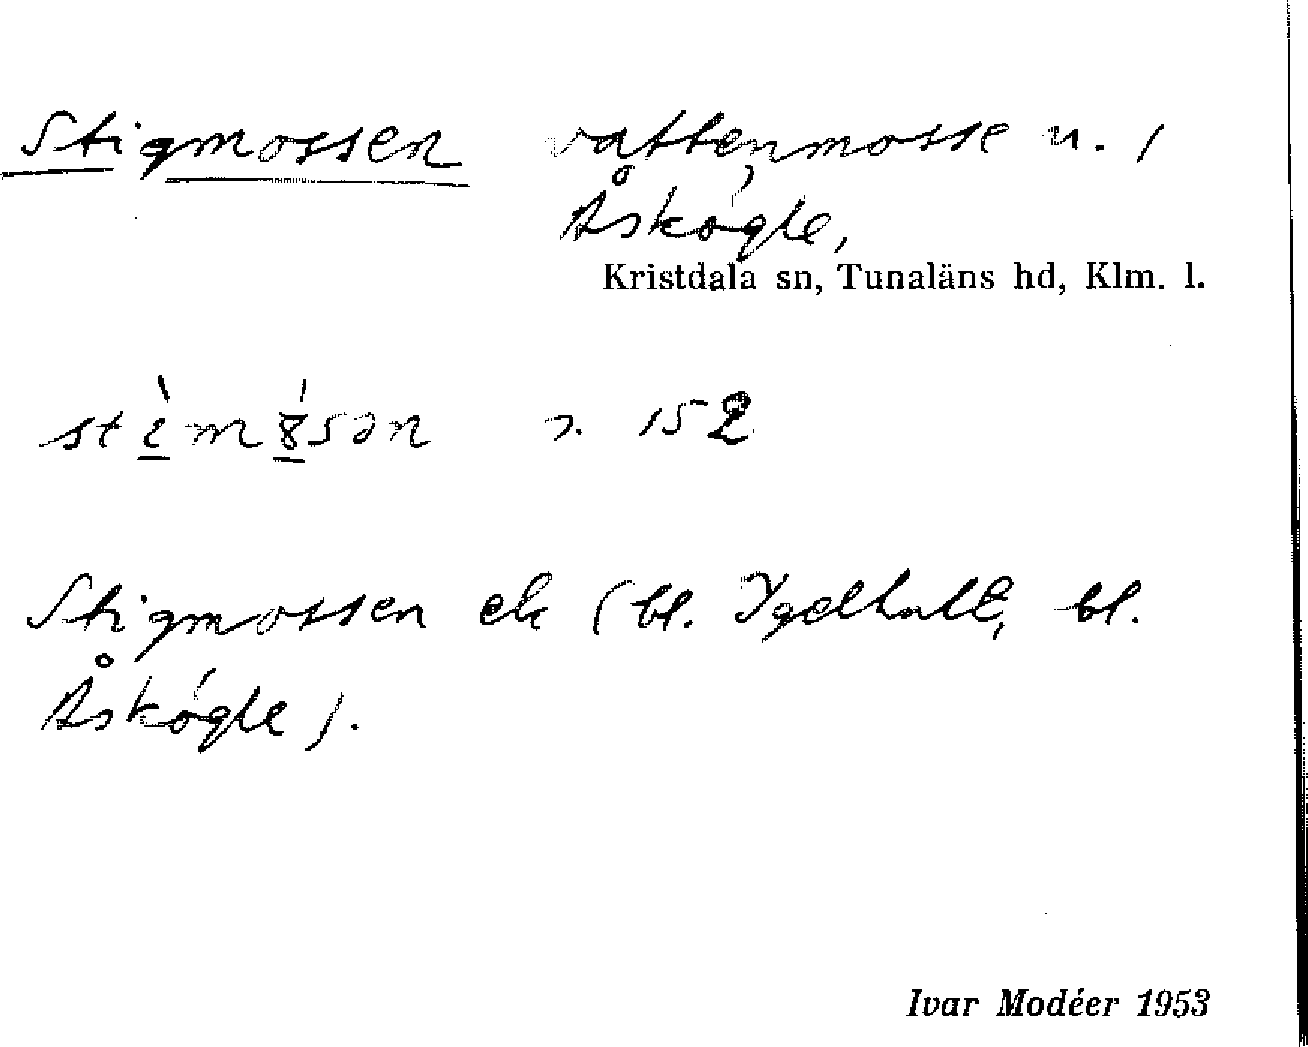 Stigmossen vattenmosse u. /
Åskögle,
Kristdala sn, Tunaläns hd, Klm. l.
152
Stigmossen ek (bl. Igelhult, bl.
Åskögle).
Ivar Modéer 1953